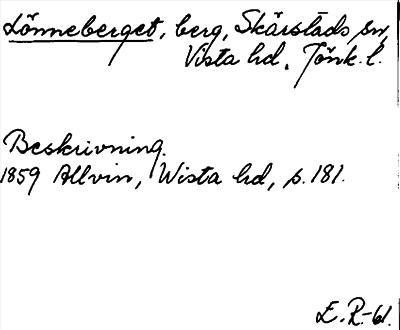 Lönneberget, berg, Skärstads sn,
Vista hd, Jönk. l.
Beskrivning.
1859 Allvin, Wista hd, s. 181.
E.R.-61.